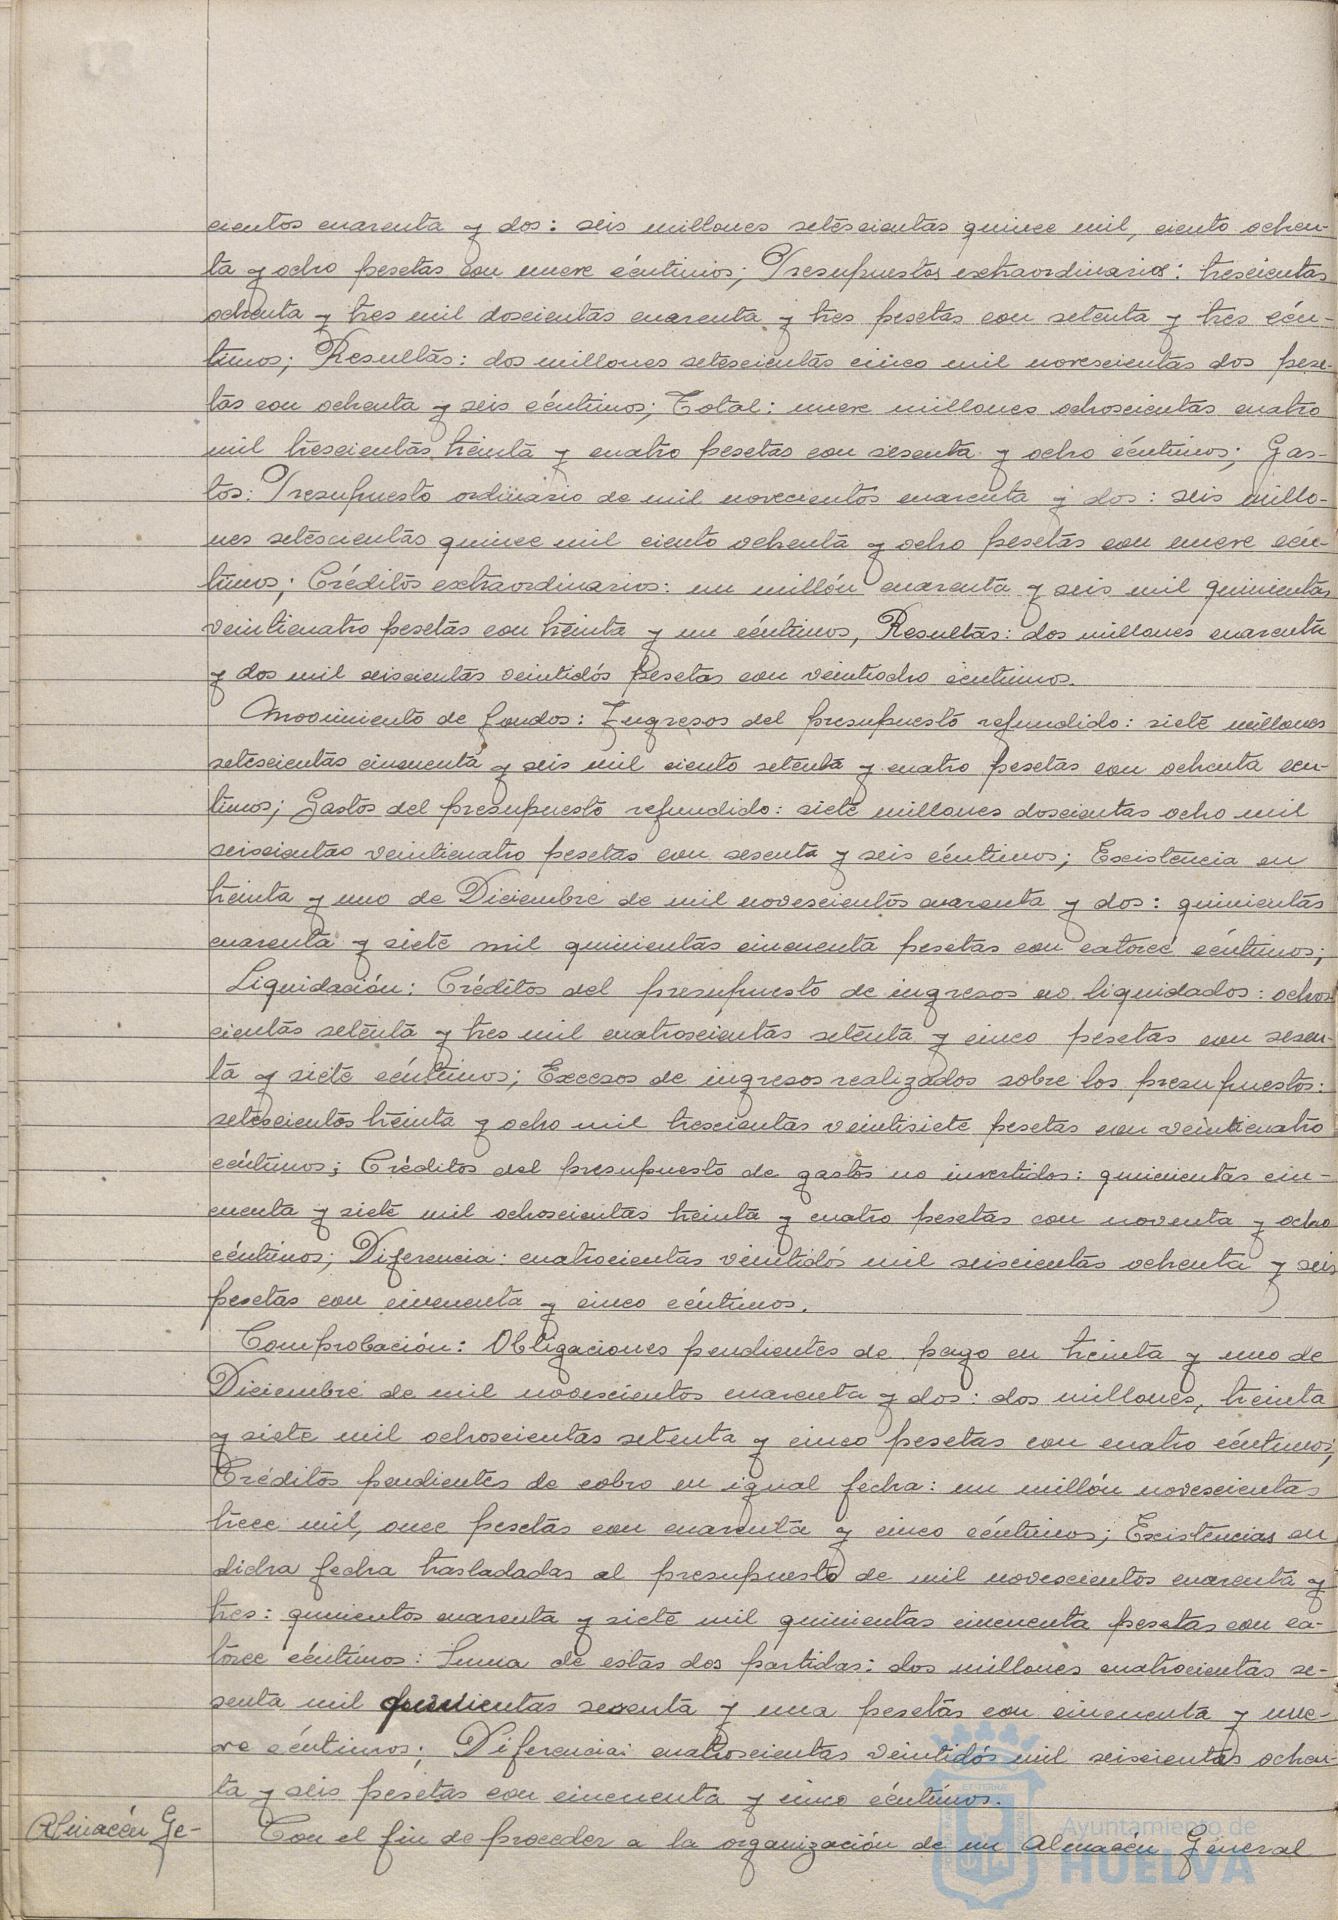 cientos cuarenta y dos: seis millones setescientas quince mil, ciento ochen-
ta y ocho pesetas con nueve céntimos; Presupuestos extraordinarios: trescientas
ochenta y tres mil doscientas cuarenta y tres pesetas con setenta y tres cén-
timos; Resultas: dos millones setescientas cinco mil novescientas dos pese-
tas con ochenta y seis céntimos; Total: nueve millones ochoscientas cuatro
mil trescientas treinta y cuatro pesetas con sesenta y ocho céntimos; Gas-
tos: Presupuesto ordinario de mil novecientos cuarenta y dos: seis millo-
nes setescientas quince mil ciento ochenta y ocho pesetas con nueve cén-
timos; Créditos extraordinarios: un millón cuarenta y seis mil quinientas
veinticuatro pesetas con treinta y un céntimos, Resultas: dos millones cuarenta
y dos mil seiscientas veintidós pesetas con veintiocho céntimos.
Movimiento de fondos: Ingresos del presupuesto refundido: siete millones
setescientas cincuenta y seis mil ciento setenta y cuatro pesetas con ochenta cén-
timos; Gastos del presupuesto refundido: siete millones doscientas ocho mil
seiscientas veinticuatro pesetas con sesenta y seis céntimos; Existencia en
treinta y uno de Diciembre de mil novescientos cuarenta y dos: quinientas
cuarenta y siete mil quinientas cincuenta pesetas con catorce céntimos;
Liquidación: Créditos del presupuesto de ingresos no liquidados: ochos
cientas setenta y tres mil cuatroscientas setenta y cinco pesetas con sesen-
ta y siete céntimos; Excesos de ingresos realizados sobre los presupuestos:
setescientos treinta y ocho mil trescientas veintisiete pesetas con veinticuatro
céntimos; Créditos del presupuesto de gastos no invertidos: quinientas cin-
cuenta y siete mil ochoscientas treinta y cuatro pesetas con noventa y ocho
céntimos; Diferencia: cuatrocientas veintidós mil seiscientas ochenta y seis
pesetas con cincuenta y cinco céntimos.
Comprobación: Obligaciones pendientes de pago en treinta y uno de
Diciembre de mil novescientos cuarenta y dos: dos millones, treinta
y siete mil ochoscientas setenta y cinco pesetas con cuatro céntimos;
Créditos pendientes de cobro en igual fecha: un millón novescientas
trece mil, once pesetas con cuarenta y cinco céntimos; Existencias en
dicha fecha trasladadas al presupuesto de mil novescientos cuarenta y
tres: quinientos cuarenta y siete mil quinientas cincuenta pesetas con ca-
torce céntimos: Suma de estas dos partidas: dos millones cuatrocientas se-
senta mil quinientas sesenta y una pesetas con cincuenta y nue-
ve céntimos; Diferencia: cuatroscientas veintidós mil seiscientas ochen-
ta y seis pesetas con cincuenta y cinco céntimos.
Almacén Ge-
Con el fin de proceder a la organización de un Almacén General
ET TERRÆ
Ayuntamiento de
HUELVA